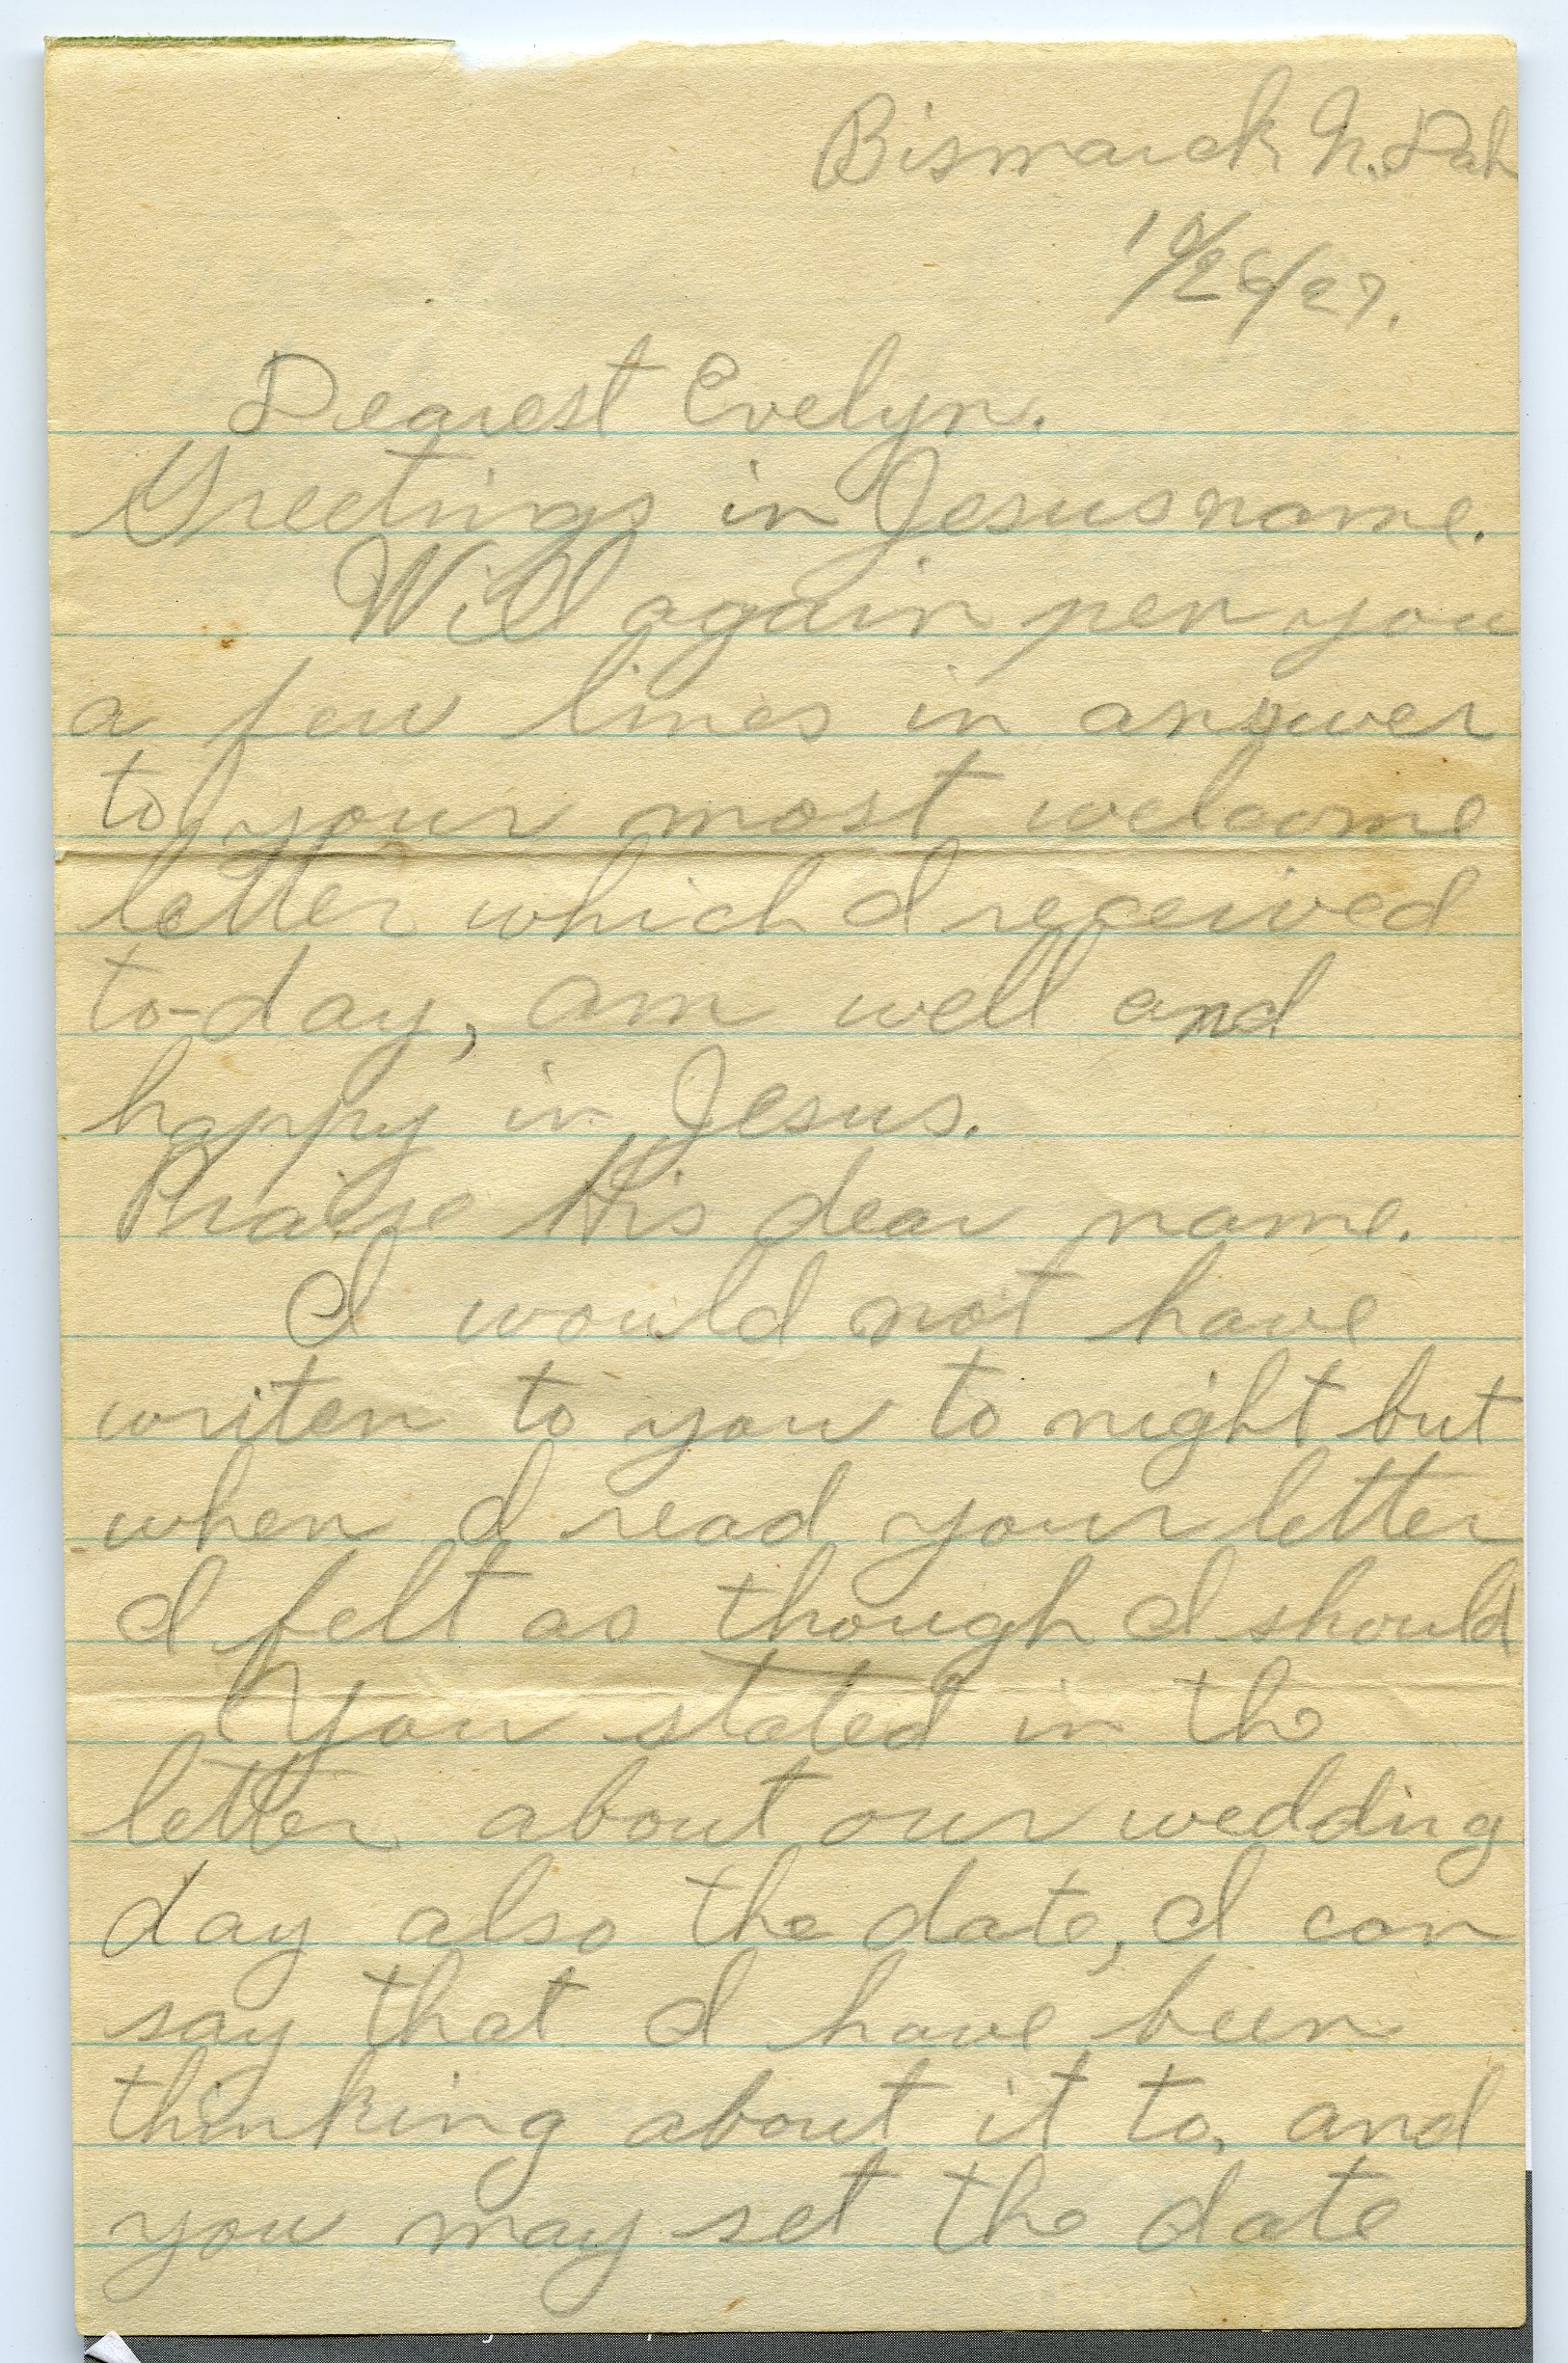 Bismarck N. Dak
10/26/27.
Dearest Evelyn.
Greetings in Jesus name.
Will again pen you
a few lines in answer
to your most welcome
letter which I received
to-day, am well and
happy in Jesus.
Praise His dear name.
I would not have
writen to you to night but
when I read your letter
I felt as though I should
You stated in the
letter about our wedding
day also the date, I can
say that I have been
thinking about it to, and
you may set the date